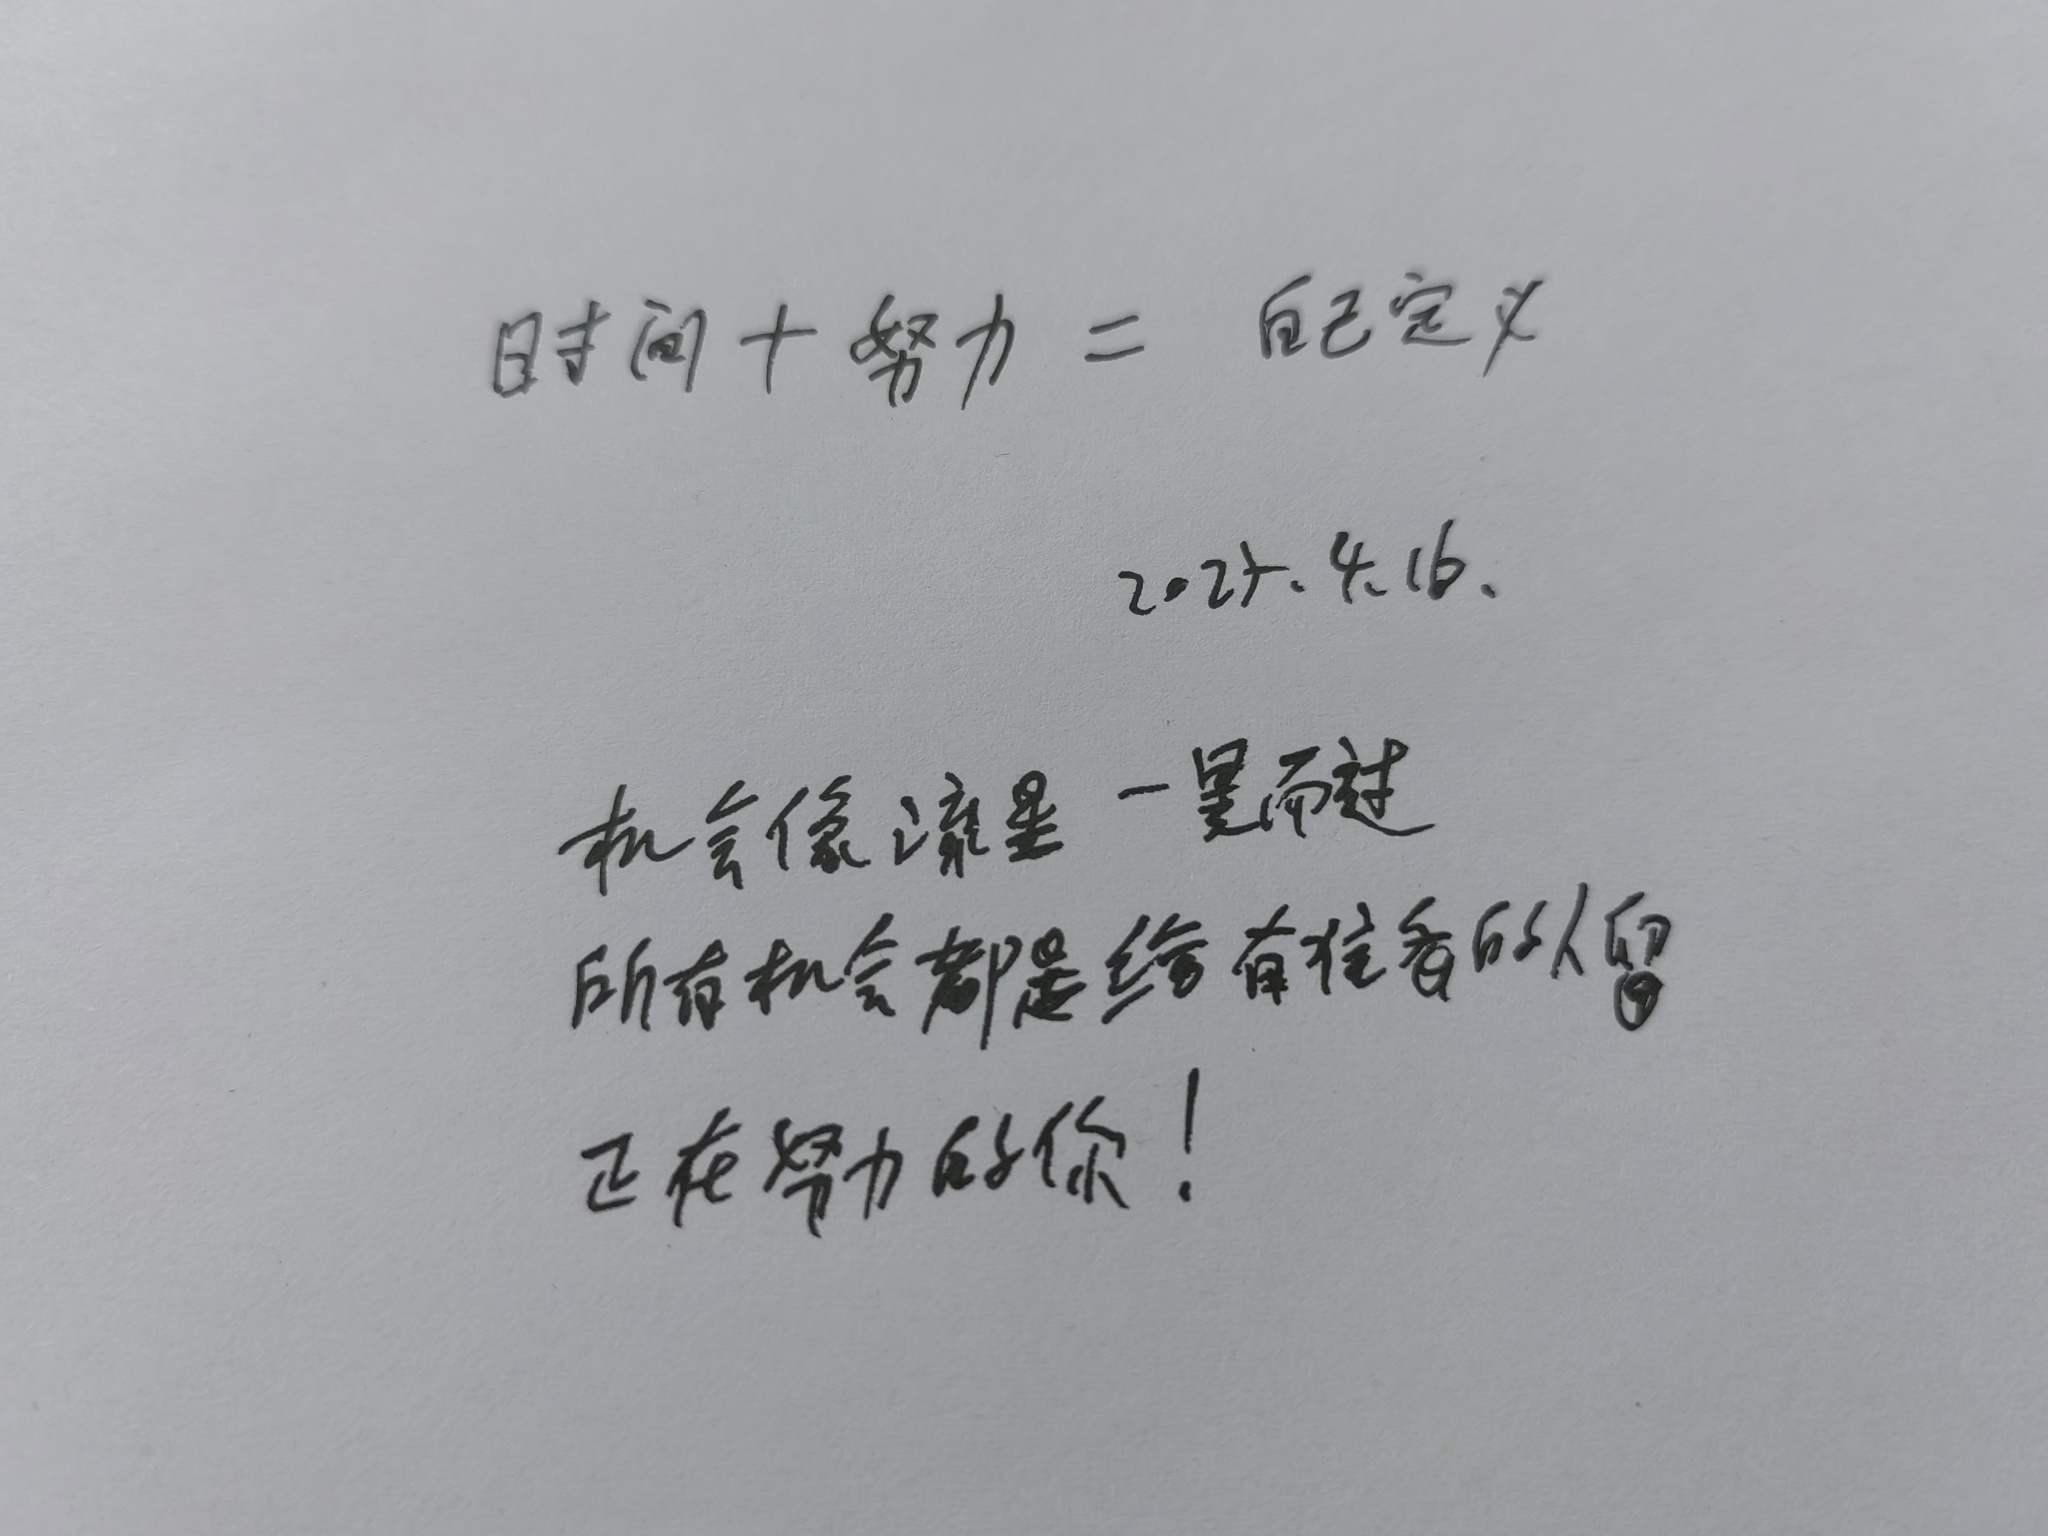 时间+努力= 自己定义
2025.4.16.
机会像流星一晃而过
所有机会都是给有准备的人留
正在努力的你!